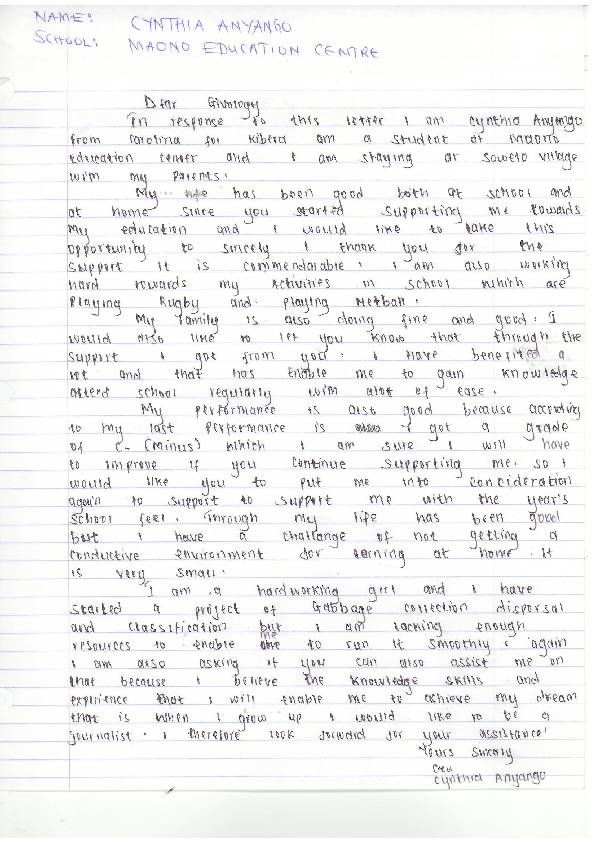 NAME: CYNTHIA ANYANGO
SCHOOL: MAONO EDUCATION CENTRE
Dear Givology
In response to this letter I am Cynthia Anyango
from Carolina for Kibera am a student at Maono
Education center and I am staying at Soweto village
with my parents.
My life has been good both at school and
at home since you started supporting me towards
my education and I would like to take this
opportunity to sincely I thank you for the
support it is commendable. I am also working
hard towards my activities in school which are
playing Rugby and playing Netball.
My family is also doing fine and good. I
would also like to let you know that through the
support I got from you. I have benefited a
lot and that has enable me to gain knowledge
attend school regularly with alot of ease.
My performance is also good because according
to my last performance is I got a grade
of C- (minus) which I am sure I will have
to improve if you continue supporting me. so I
would like you to put me into concideration
again to support to support me with the year's
school feel. Through my life has been good
but I have a challange of not getting a
conductive environment for lerning at home. It
is very small.
I am a hardworking girl and I have
started a project of Gabbage collection dispersal
and classification but I am lacking enough
resources to enable me to run it smoothly. again
I am also asking if you can also assist me on
that because I believe the knowledge skills and
experience that I will enable me to achieve my dream
that is when I grow up I would like to be a
journalist. I therefore look forward for your assistance.
Yours Sincely
Cynthia Anyango